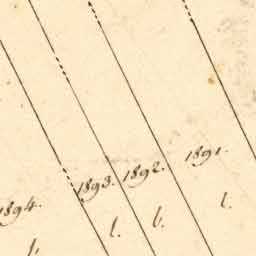 1894. 1893. 1892. 1891.
l. l. l. l.